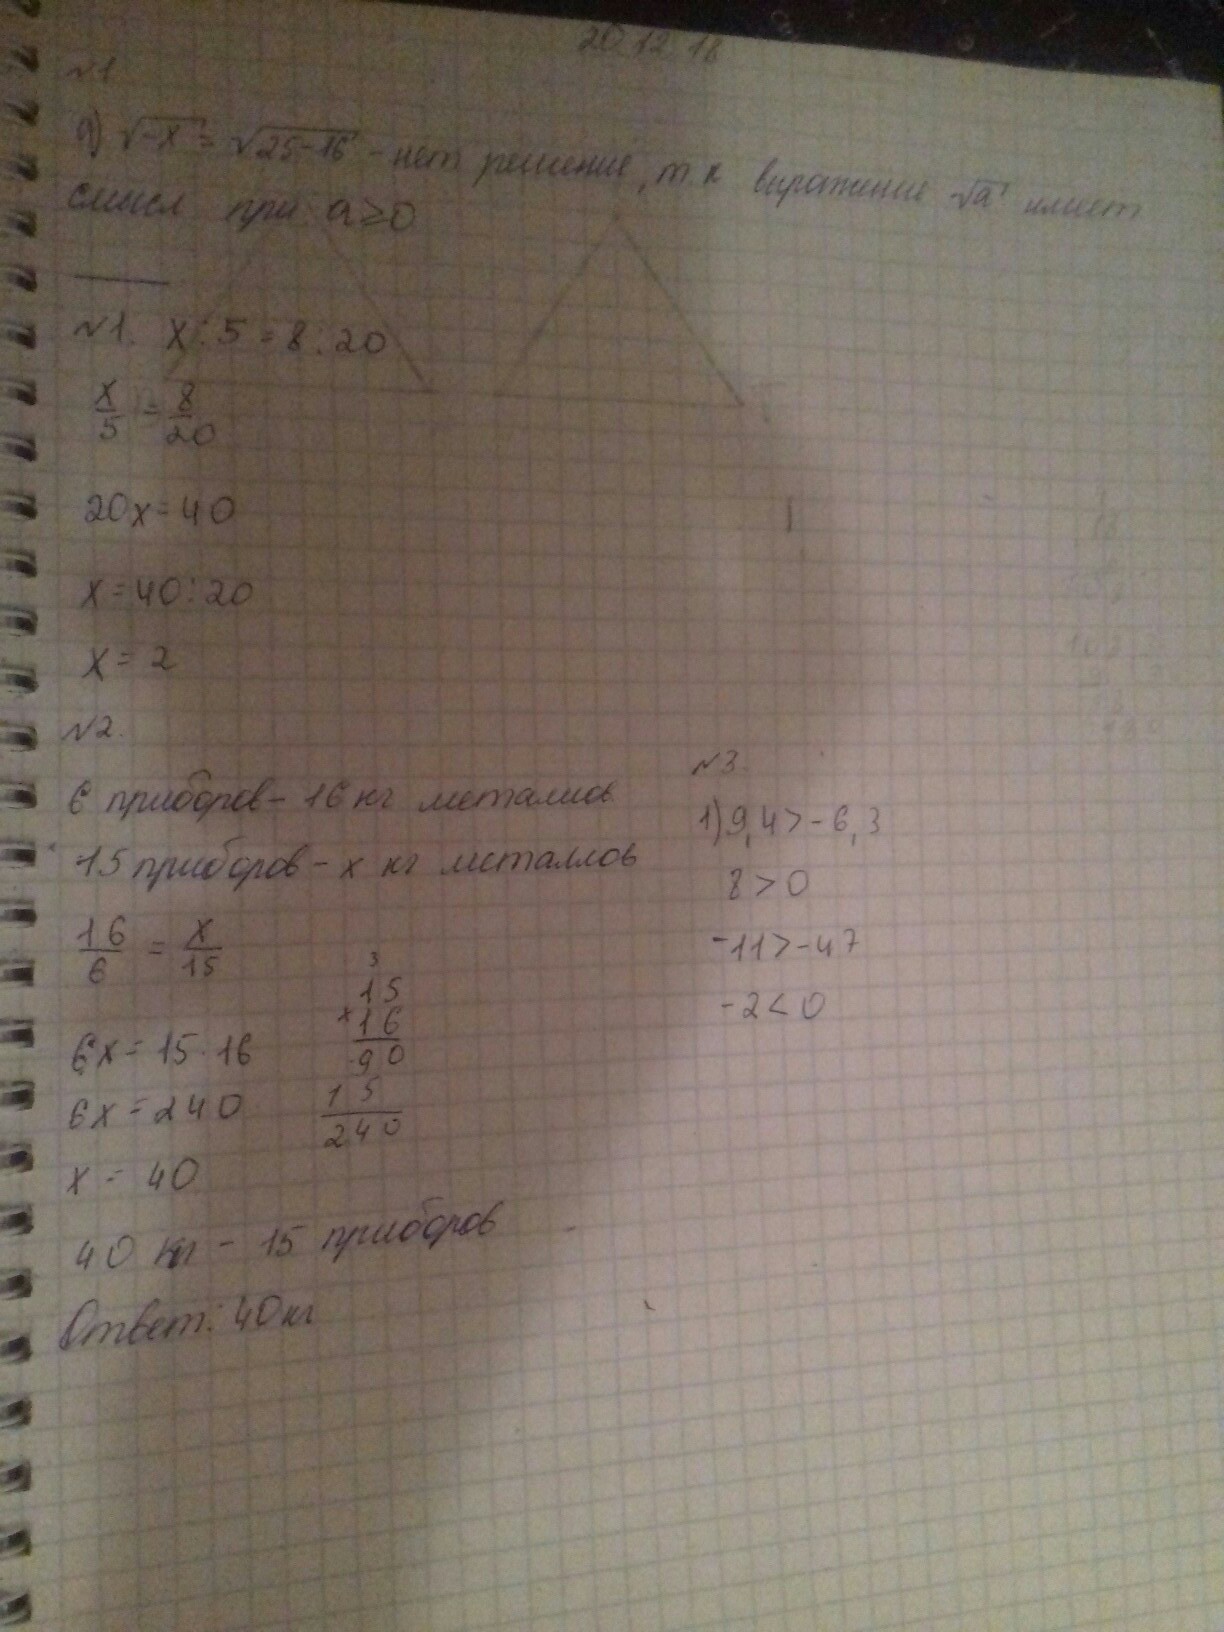 20.12.18
№1
а) √-x = √25-16 - нет решение, т.к выражение √a имеет
смысл при a≥0
№1. x:5=8:20
x/5 = 8/20
20x=40
x=40:20
x=2
№2.
6 приборов - 16 кг металлов
15 приборов - x кг металлов
16/6 = x/15
6x=15·16
6x=240
x=40
3
15
×16
90
15
240
40 кг - 15 приборов
Ответ: 40кг
№3
1) 9,4>-6,3
8>0
-11>-47
-2<0